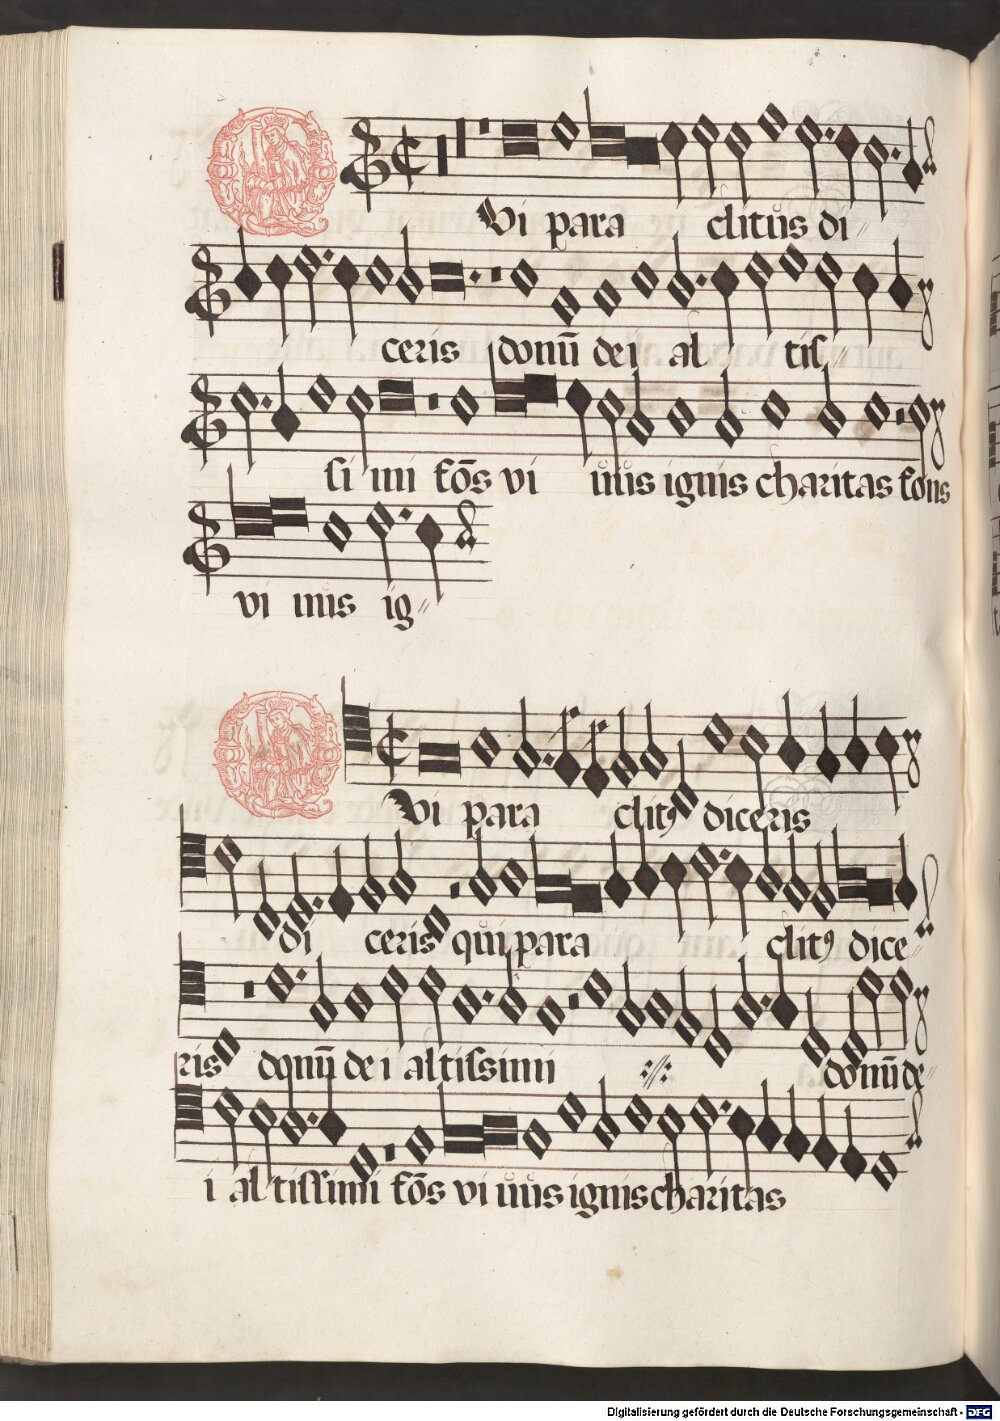 Qui para clitus di〃
ceris donū dei al tis〃
si mi fōs vi uus ignis charitas fons
vi uus ig〃
Qui para clitꝰ diceris
di ceris qui para clitꝰ dice〃
ris donū de i altissimi :〃: donū de〃
i altissimi fōs vi uus ignis charitas
Digitalisierung gefördert durch die Deutsche Forschungsgemeinschaft - DFG